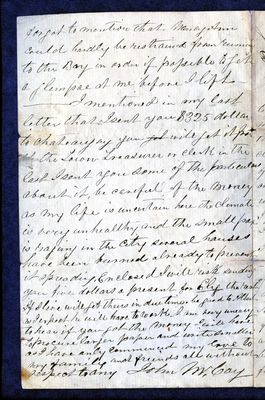 forgot to mention that Mary Ann
could hardly be restrained from running
to the Bay in order if possible to get
a glimpse at me before I left
I mentioned in my last
letter that I sent you 8325 dollars
to you will get it
the town treasurer or clerk in the
last I sent you some of the particulars
about it be careful of the money
as my life is uncertain here the climate
is very unhealthy and the small pox
is raging in the city several houses
have been burned already to prevent
it spreading Enclosed I will risk sending
you five dollars a present for the
If I live will get theirs in due time be good to
respect he will have to work I am very uneasy
to hear if you got the money will have
to procure larger paper and write smaller
as I have only commenced my love to
my family and friends all without
respect to any John McCoy